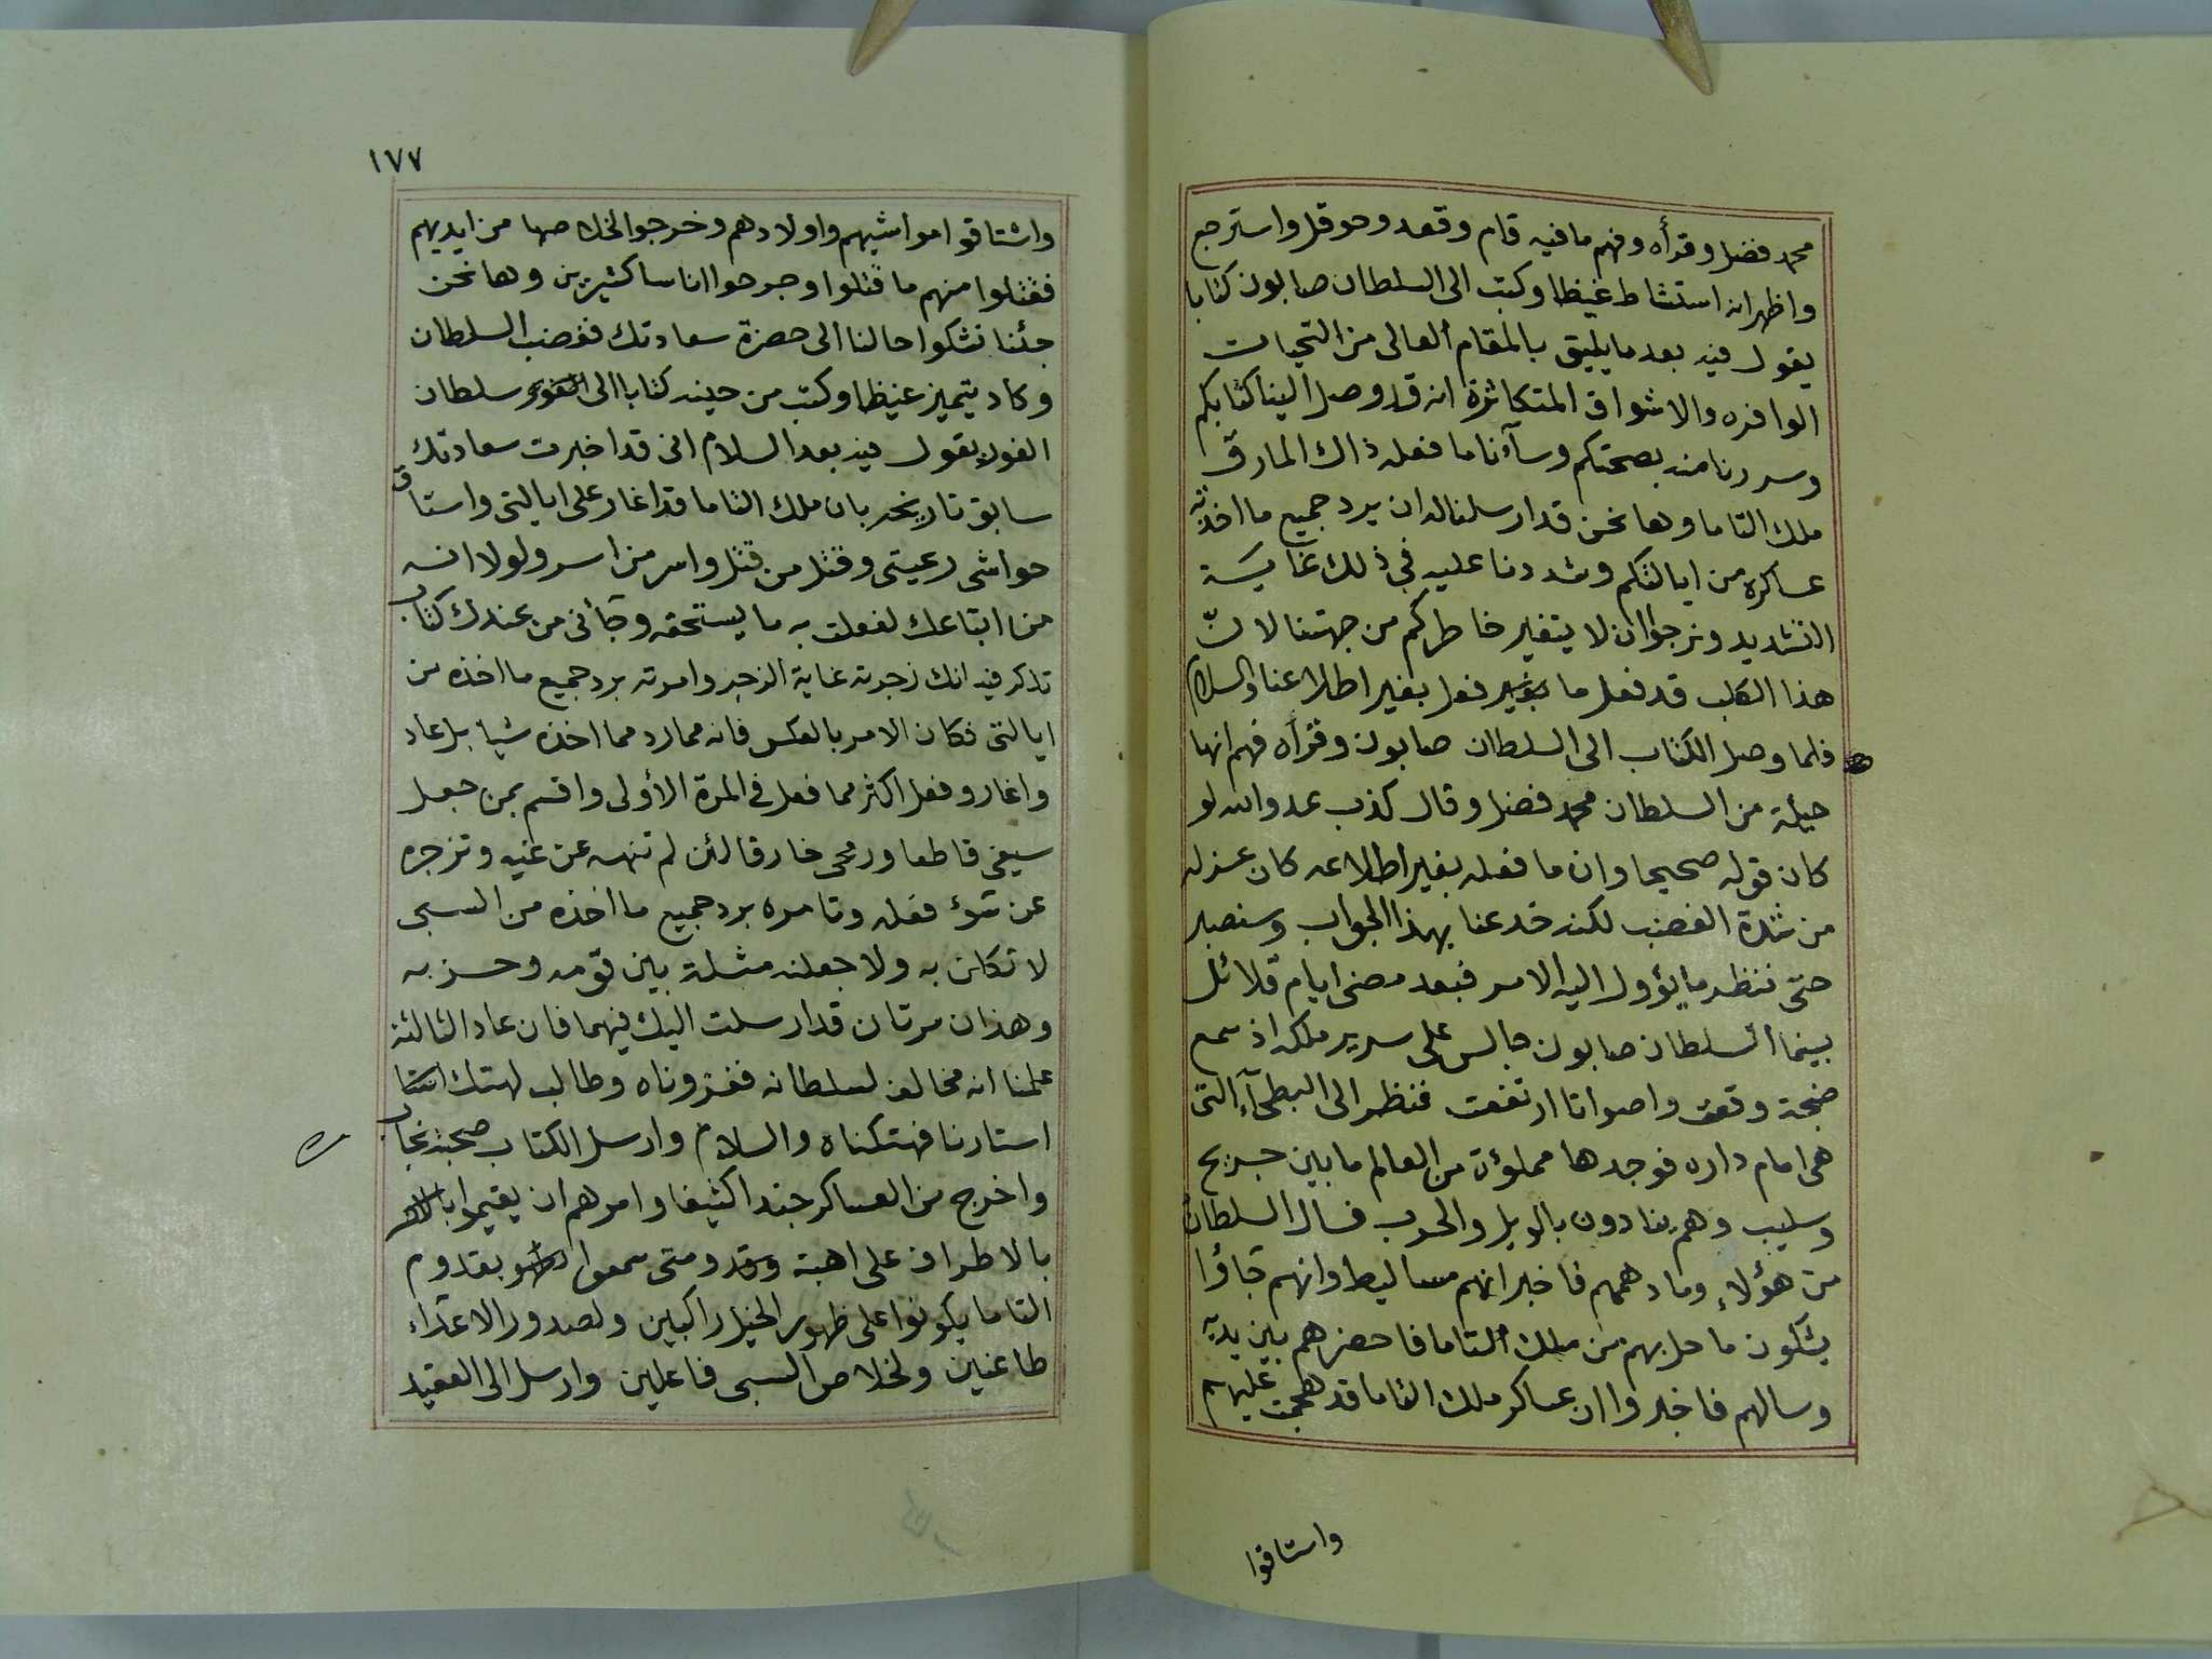 محمد فضل وقرأه وفهم ما فيه قام وقعد وحوقل واسترجع
واظهر انه استشاط غيظا وكتب الى السلطان صابون كتابا
يقول فيه بعد ما يليق بالمقام العالى من التحيات
الوافره والاشواق المتكاثرة انه قد وصل الينا كتابكم
وسررنا منه بصحتكم وسآءنا ما فعله ذاك المارق
ملك التاما وها نحن قد ارسلنا له ان يرد جميع ما اخذته
عساكره من ايالتكم وشددنا عليه في ذلك غاية
التشديد ونرجوا ان لا يتغير خاطركم من جهتنا لانّ
هذا الكلب قد فعل ما فعل بغير اطلاعنا والسلام
فلما وصل الكتاب الى السلطان صابون وقرأه فهم انها
حيلة من السلطان محمد فضل وقال كذب عدو الله لو
كان قوله صحيحا وان ما فعله بغير اطلاعه كان عزله
من شدة الغضب لكنه خدعنا بهذا الجواب وسنصبر
حتى ننظر ما يؤول اليه الامر فبعد مضى ايام قلائل
بينما السلطان صابون جالس على سرير ملكه اذ سمع
ضجة وقعت واصواتا ارتفعت فنظر الى البطحآء التى
هى امام داره فوجدها مملوءة من العالم ما بين جريح
وسليب وهم ينادون بالويل والحرب فسال السلطان
من هؤلاء وما دهمهم فاخبر انهم مساليط وانهم جاؤا
يشكون ما حل بهم من ملك التاما فاحضرهم بين يديه
وسالهم فاخبروا ان عساكر ملك التاما قد هجمت عليهم
واستاقوا
١٧٧
واشتاقوا مواشيهم واولادهم وخرجوا لخلاصها من ايديهم
فقتلوا منهم ما قتلوا وجرحوا اناسا كثيرين وها نحن
جئنا نشكوا حالنا الى حضرة سعادتك فغضب السلطان
وكاد يتميز غيظا وكتب من حينه كتابا الى سلطان
الفور يقول فيه بعد السلام انى قد اخبرت سعادتك
سابق تاريخه بان ملك التاما قد اغار على ايالتى واستاق
حواشى رعيتى وقتل من قتل واسر من اسر ولولا انه
من اتباعك لفعلت به ما يستحقه وجآنى من عندك كتاب
تذكر فيه انك زجرته غاية الزجر وامرته برد جميع ما اخذه من
ايالتى فكان الامر بالعكس فانه مما رد مما اخذه شيا بل عاد
واغار وفعل اكثر مما فعل في المرة الأولى واقسم بمن جعل
سيفى قاطعا ورمحى خارقا لئن لم تنهه عن غيه وتزجره
عن سوء فعله وتامره برد جميع ما اخذه من السبى
لا نكلن به ولا جعلنه مثلة بين قومه وحزبه
وهذان مرتان قد ارسلت اليك فيهما فان عاد الثالثة
علمنا انه مخالف لسلطانه فغزوناه وطالب لهتك
استارنا فهتكناه والسلام وارسل الكتاب صحبة نجاب
واخرج من العساكر جندا كثيفا وامرهم ان يقيموا
بالاطراف على اهبة ومتى سمعوا بقدوم
التاما يكونوا على ظهور الخيل راكبين ولصدور الاعداء
طاعنين ولخلاص السبى فاعلين وارسل الى العقيد